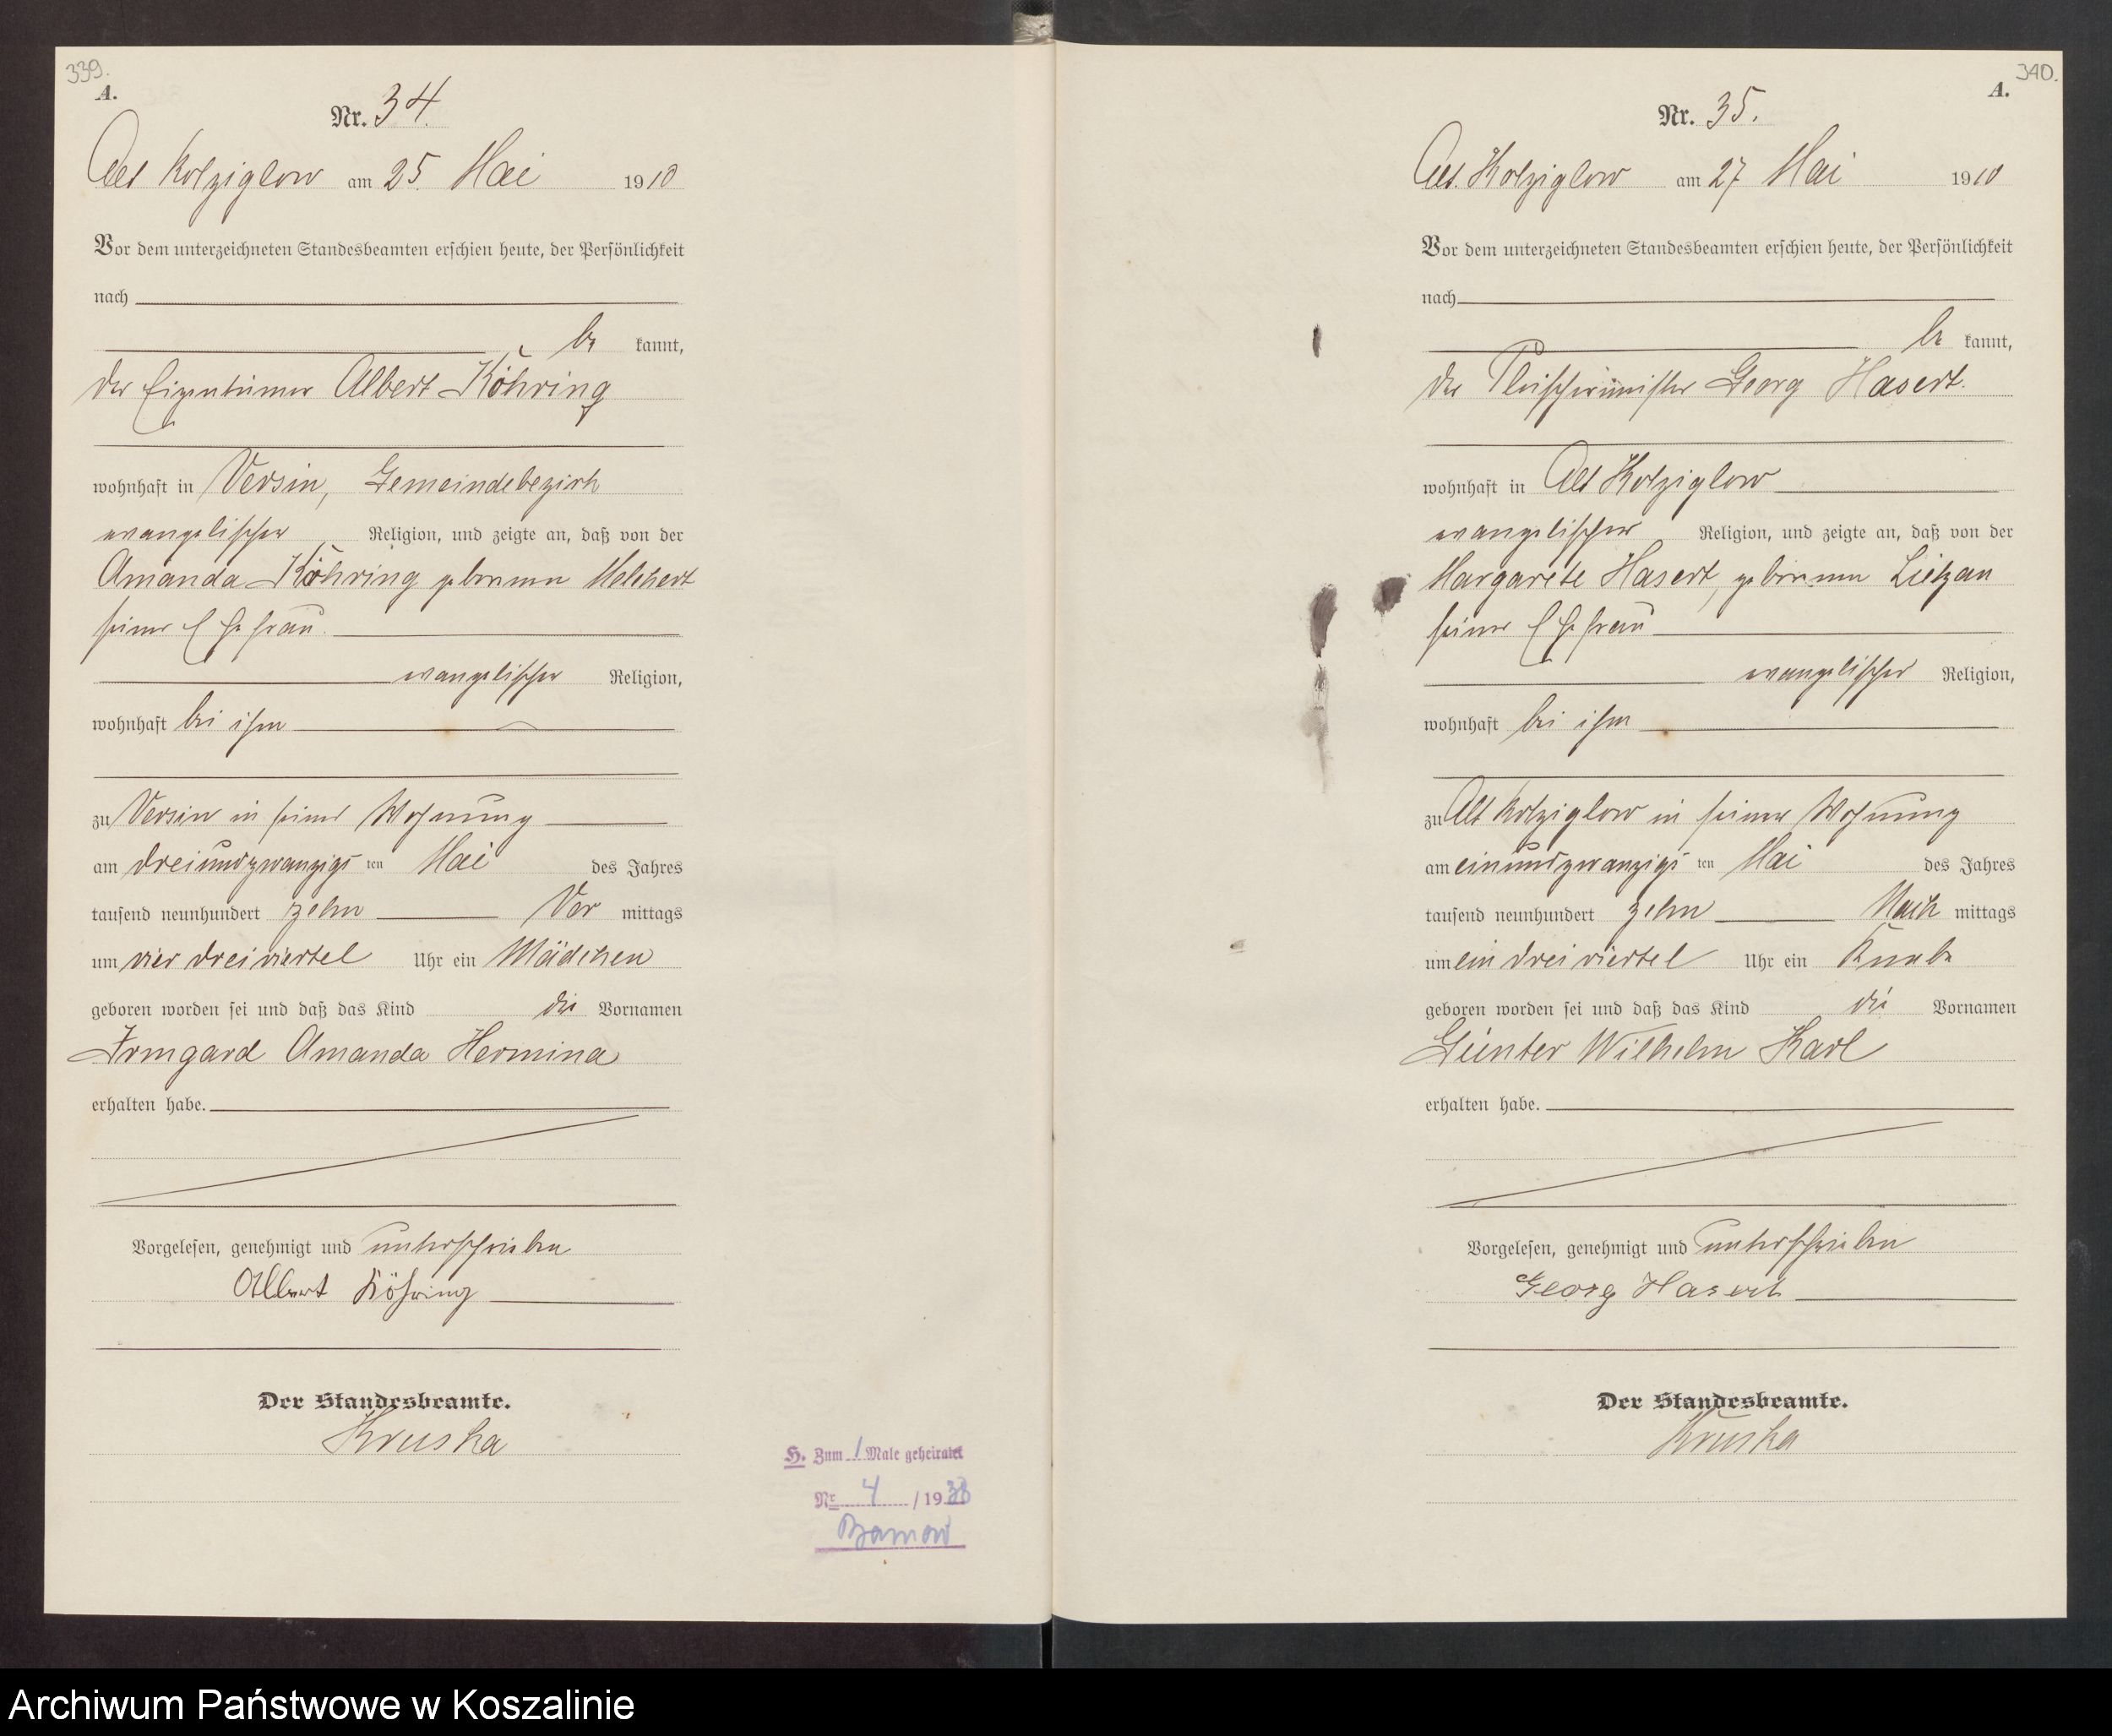 339.
A.
Nr. 34.
Alt Kolziglow am 25. Mai 1910
Vor dem unterzeichneten Standesbeamten erschien heute, der Persönlichkeit
nach
be kannt,
der Eigentümer Albert Köhring
wohnhaft in Versin, Gemeindebezirk
evangelischer Religion, und zeigte an, daß von der
Amanda Köhring geborenen Melchert
seiner Ehefrau.
evangelischer Religion,
wohnhaft bei ihm
zu Versin in seiner Wohnung
am dreiundzwanzigs ten Mai des Jahres
tausend neunhundert zehn Vor mittags
um vier dreiviertel Uhr ein Mädchen
geboren worden sei und daß das Kind die Vornamen
Irmgard Amanda Hermina
erhalten habe.
Vorgelesen, genehmigt und unterschrieben
Albert Köhring
Der Standesbeamte.
Kruska
H. Zum 1 Male geheiratet
Nr. 4 / 1938
340.
A.
Nr. 35.
Alt Kolziglow am 27 Mai 1910
Vor dem unterzeichneten Standesbeamten erschien heute, der Persönlichkeit
nach
be kannt,
der Fleischermeister Georg Hasert.
wohnhaft in Alt Kolziglow
evangelischer Religion, und zeigte an, daß von der
Margarete Hasert, geborenen Lietzau
seiner Ehefrau
evangelischer Religion,
wohnhaft bei ihm
zu Alt Kolziglow in seiner Wohnung
am einundzwanzigs ten Mai des Jahres
tausend neunhundert zehn Nach mittags
um ein dreiviertel Uhr ein Knabe
geboren worden sei und daß das Kind die Vornamen
Günter Wilhelm Karl
erhalten habe.
Vorgelesen, genehmigt und unterschrieben
Georg Hasert
Der Standesbeamte.
Kruska
Archiwum Państwowe w Koszalinie